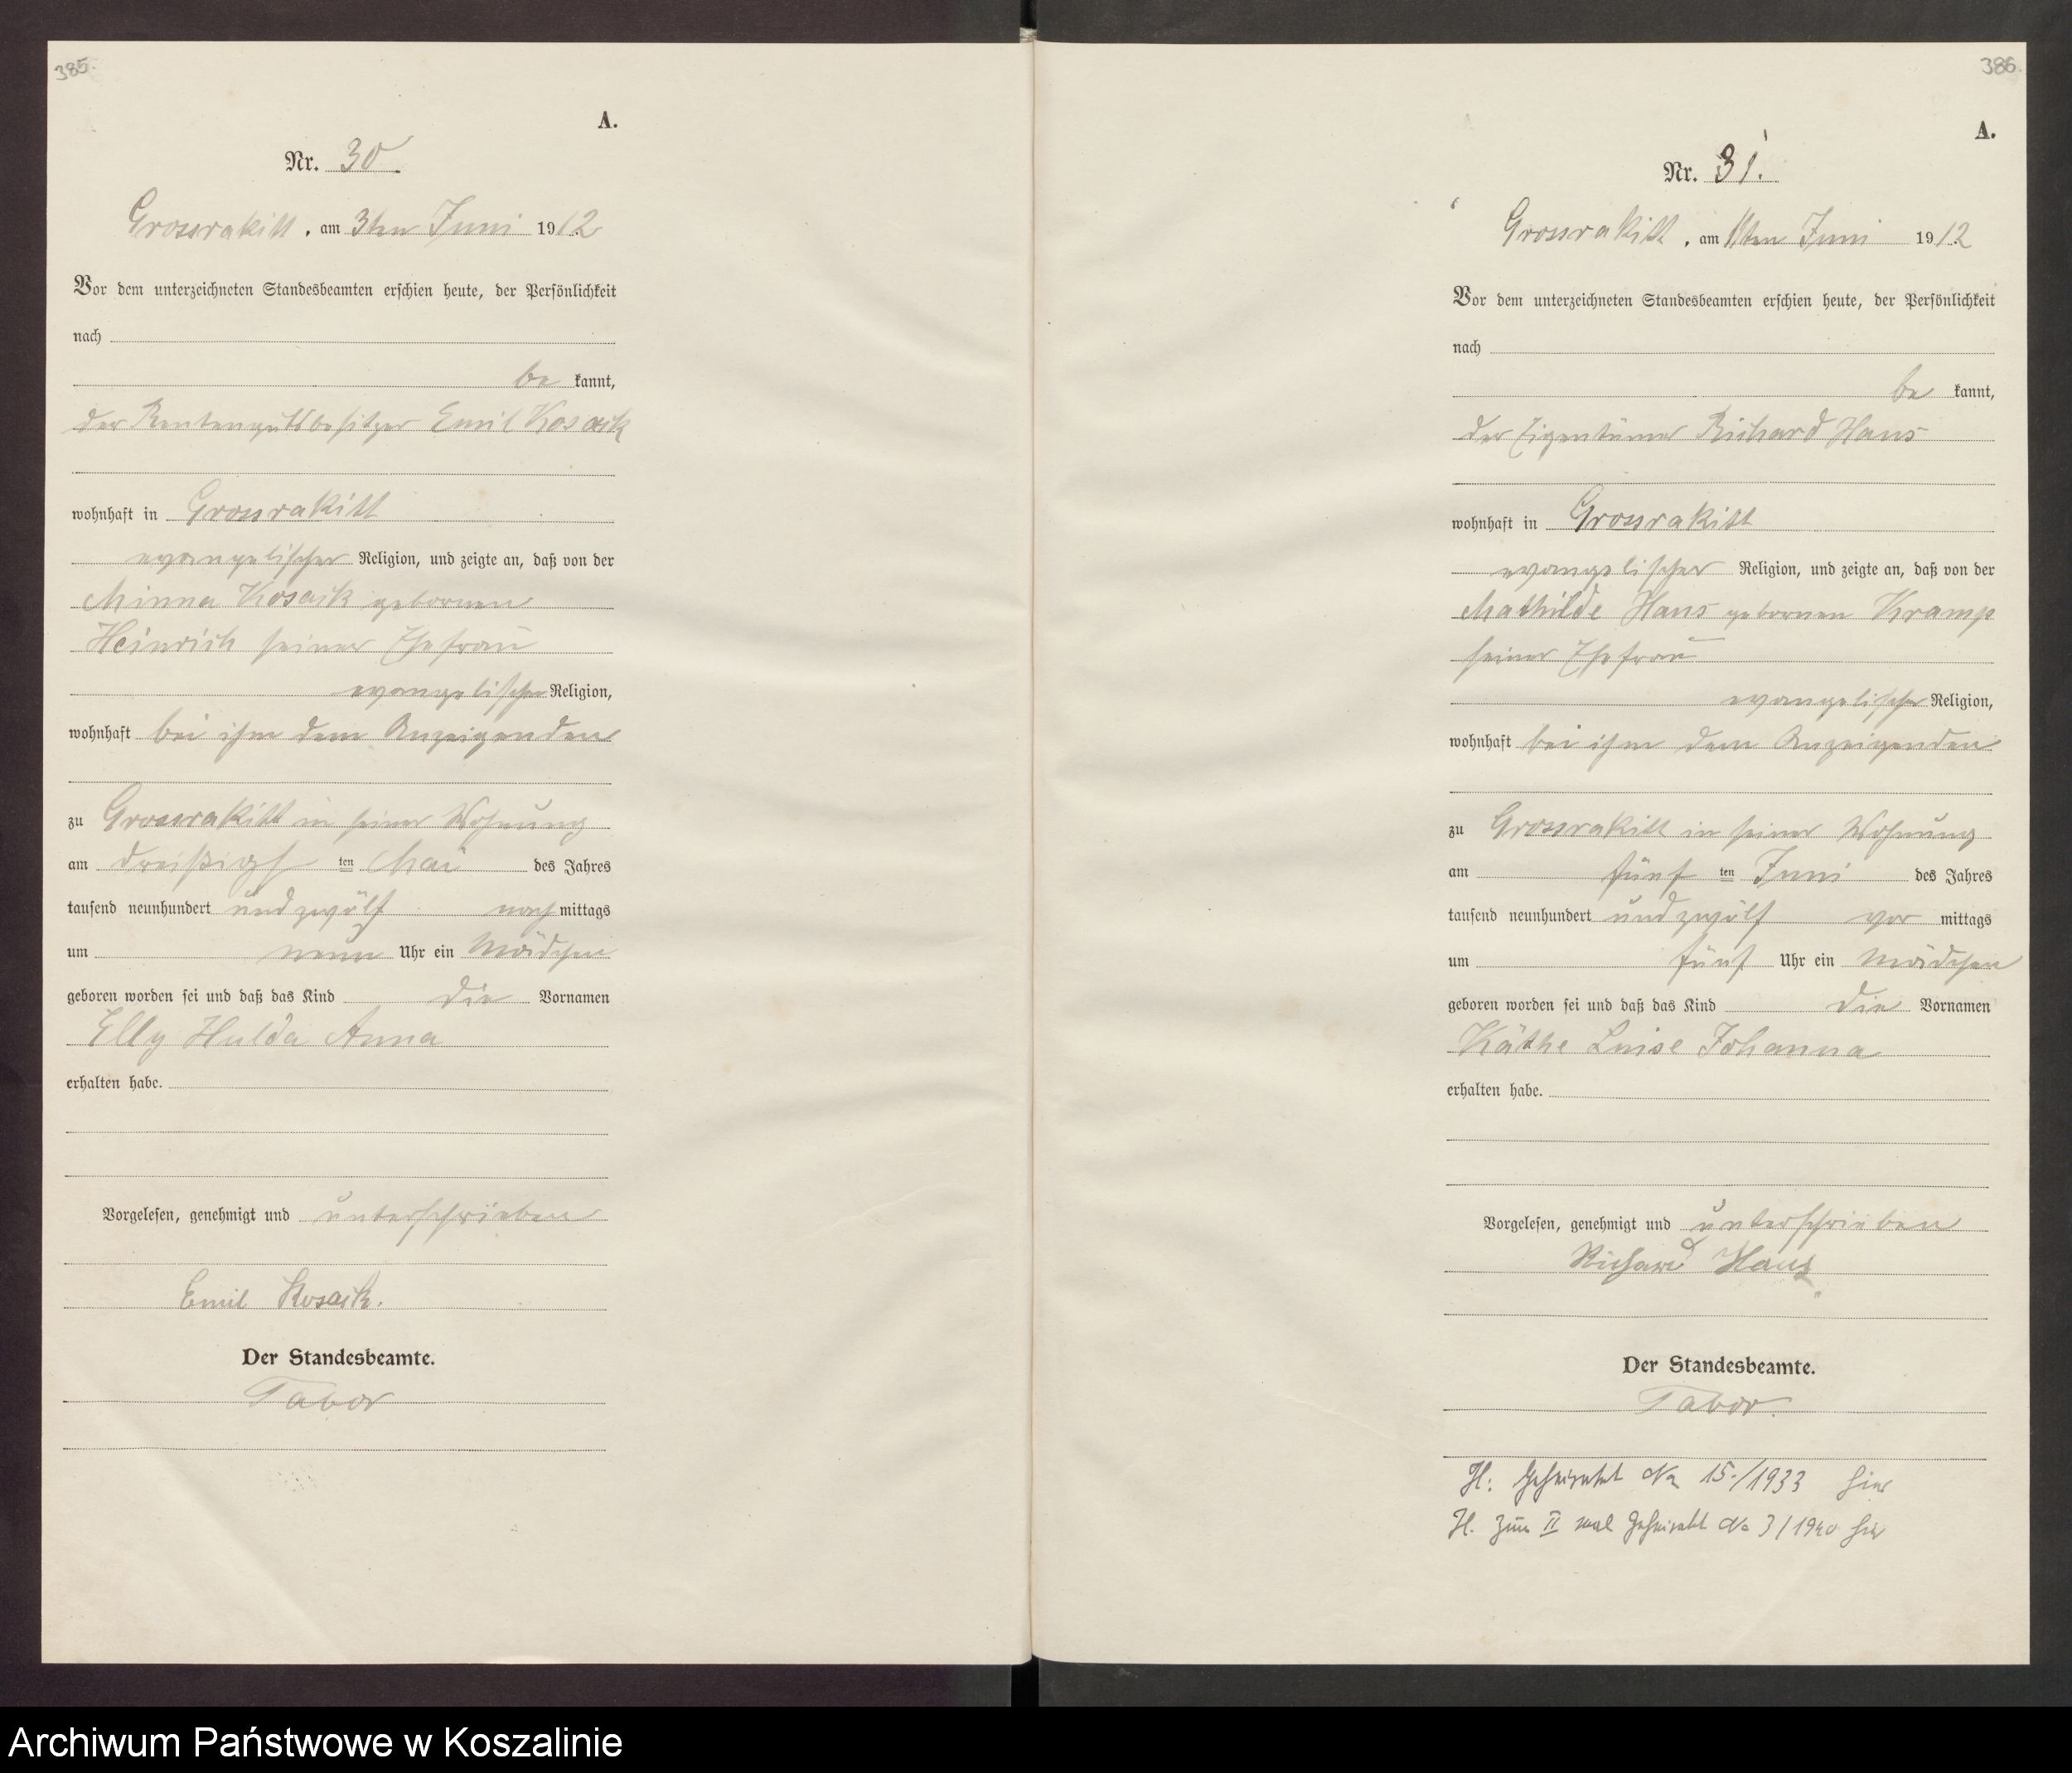 385.
A.
Nr. 30.
Grossrakitt, am 3ten Juni 1912
Vor dem unterzeichneten Standesbeamten erschien heute, der Persönlichkeit
nach
be kannt,
der Rentengutsbesitzer Emil Kosack
wohnhaft in Grossrakitt
evangelischer Religion, und zeigte an, daß von der
Minna Kosack gebornen
Heinrich seiner Ehefrau
evangelischer Religion,
wohnhaft bei ihm dem Anzeigenden
zu Grossrakitt in seiner Wohnung
am dreißigsten Mai des Jahres
tausend neunhundert und zwölf nach mittags
um neun Uhr ein Mädchen
geboren worden sei und daß das Kind die Vornamen
Elly Hulda Anna
erhalten habe.
Vorgelesen, genehmigt und unterschrieben
Emil Kosack.
Der Standesbeamte.
Tabor
386.
A.
Nr. 31.
Grossrakitt, am 11ten Juni 1912
Vor dem unterzeichneten Standesbeamten erschien heute, der Persönlichkeit
nach
be kannt,
der Eigentümer Richard Haus
wohnhaft in Grossrakitt
evangelischer Religion, und zeigte an, daß von der
Mathilde Haus gebornen Kramp
seiner Ehefrau
evangelischer Religion,
wohnhaft bei ihm dem Anzeigenden
zu Grossrakitt in seiner Wohnung
am fünften Juni des Jahres
tausend neunhundert und zwölf vor mittags
um fünf Uhr ein Mädchen
geboren worden sei und daß das Kind die Vornamen
Käthe Luise Johanna
erhalten habe.
Vorgelesen, genehmigt und unterschrieben
Richard Haus
Der Standesbeamte.
Tabor.
H: Geheiratet No 15./1933 hier
H. zum II mal Geheiratet No 3/1940 hier
Archiwum Państwowe w Koszalinie